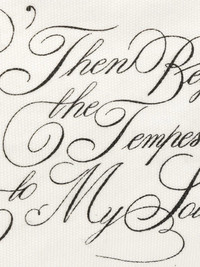 Then Re
the Tempes
to My Sou